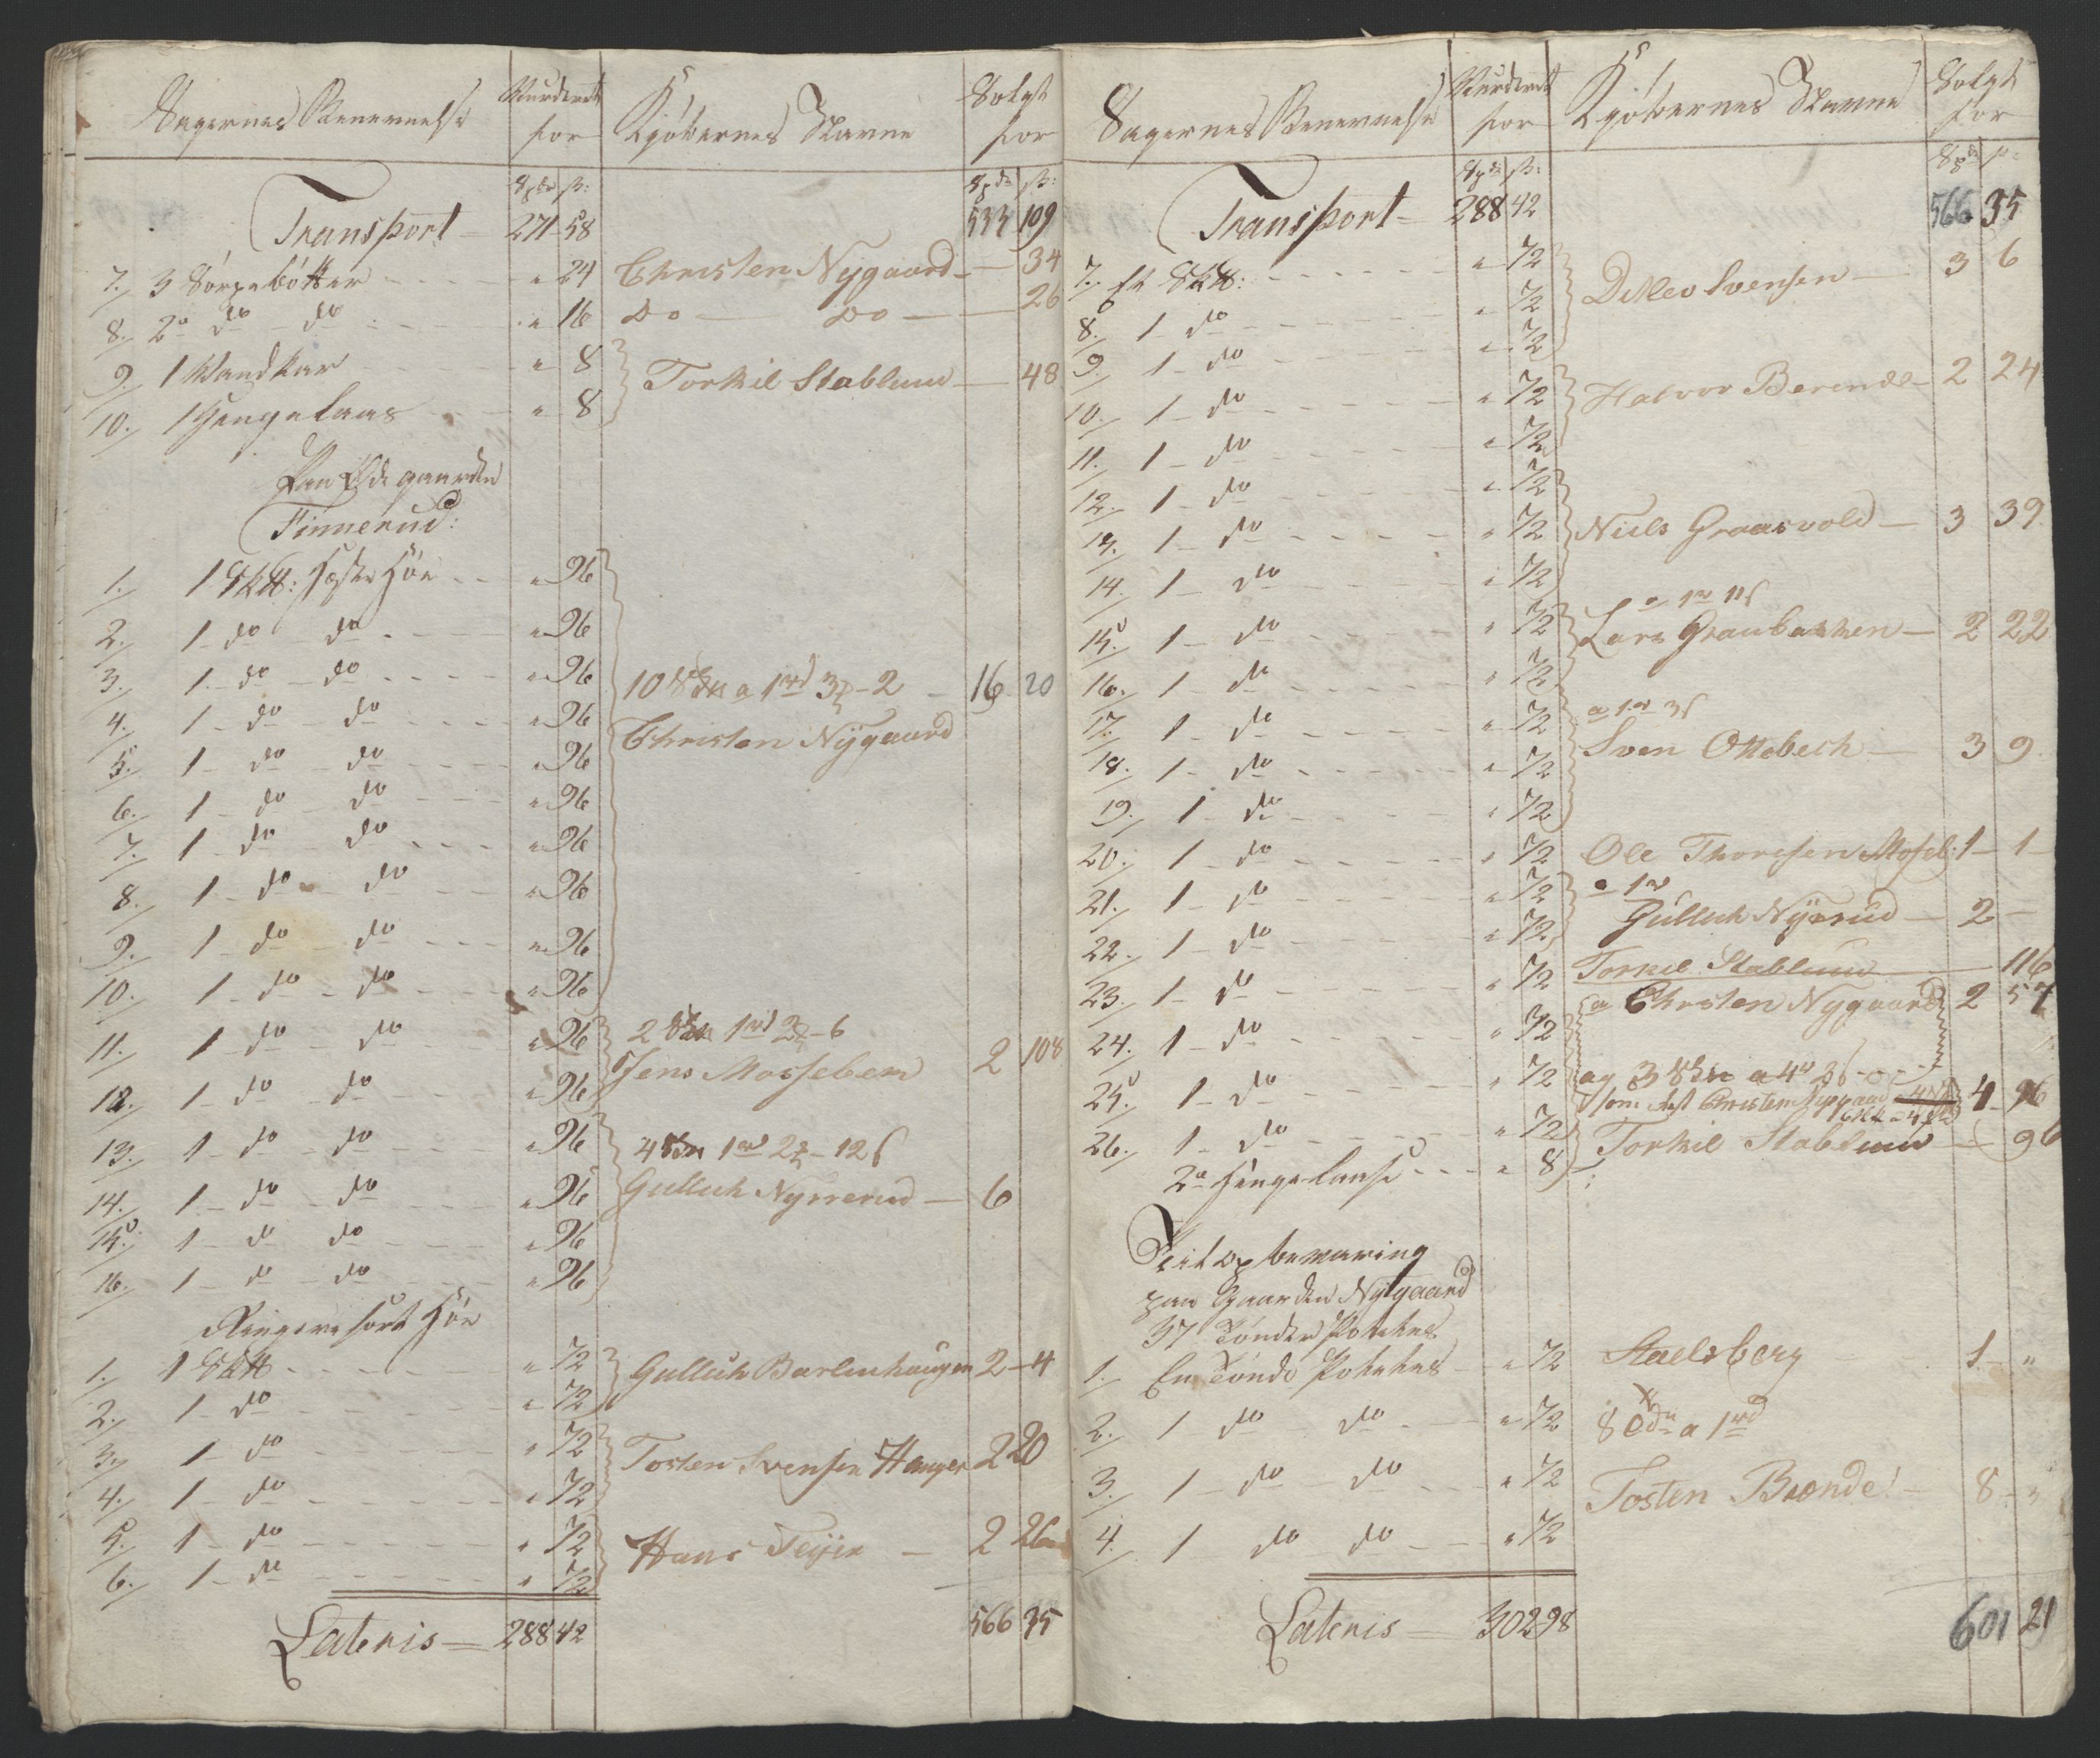 Sagernes Benævnelse | Vurderet for | Kjöbernes Navne | Solgt for
Spdr | ß: | Spdr | ß:
Transport — 271 58 | 533 109
7. 3 Sörpebötter - - - " 24 | Christen Nÿgaard — 34
8. 2 do - do - - - " 16 | Do — Do — 26
9. 1 Vandkar " 8 | Torkil Stablund — 48
10. 1 Hengelaas " 8
Paa Ödegaarden
Finnerud:
1. 1 Sk℔: Hæste Höe - - " 96
2. 1 do - do - - - " 96
3. 1 - do - do - - - - " 96 | 10 a 1 3 - 2 — 16 20
4. 1 - do - do - - - " 96 | Christen Nÿgaard
5. 1 - do - do - - - " 96
6. 1 - do do - - - " 96
7. 1 - do do - - - " 96
8. 1 - do - do - - " 96
9. 1 - do - do - - - " 96
10. 1 - do - do - - - " 96
11. 1 - do - do " 96 | 2 1 2 - 6
12. 1 - do - do - - - " 96 | Jens Mossebem 2 108
13. 1 - do - do - - - " 96 | 4 1 2 - 12
14. 1 - do - do - - - " 96 | Gulluk Nyrrerud — 6
15. 1 - do do - - - " 96
16. 1 - do - do - - - " 96
Ringere sort Höe
1. 1 Sk℔ - - - " 72 | Gulluk Barlinhaugen 2 — 4
2. 1 - do - - - " 72
3. 1 - do - - - " 72 | Tosten Svensen Haugen 2 20
4. 1 - do - - - " 72
5. 1 - do - - - " 72 | Hans Teÿen — 2 26
6. 1 - do - - - " 72
Lateris — 288 42 | 566 35
Sagernes Benævnelse | Vurderet for | Kjöbernes Navne | Solgt for
Spdr | ß: | Spdr | ß:
Transport — 288 42 | 566 35
7. Et Sk℔: - - - " 72 | Ditlev Svensen — 3 6
8. 1 - do - - - " 72
9. 1 - do - - - " 72
10. 1 - do - - - " 72 | Halvor Berends — 2 24
11. 1 - do - - - " 72
12. 1 - do - - - " 72
13. 1 - do - - - " 72 | Niels Graasvold — 3 39
14. 1 - do - - - " 72
a 1 11
15. 1 - do - - - " 72 | Lars Graubakken — 2 22
16. 1 - do - - - " 72
a 1 3
17. 1 - do - - - " 72 | Sven Ottebech — 3 9
18. 1 - do - - - " 72
19. 1 - do - - - " 72
20. 1 - do - - - " 72 | Ole Thoresen Moseb: 1 — 1
a 1
21. 1 - do - - - " 72 | Gulluk Nÿerud — 2 —
22. 1 - do - - - " 72
23. 1 - do - - - " 72 | Torkil Stablund — 116
a Christen Nygaard 2 57
24. 1 - do - - - " 72
25. 1 - do - - - " 72 | og 3 a 4
Christen Nygaard 4 96
26. 1 - do - - - " 72 | Torkil Stablund — 96
2 Hengelaase - - - " 8
Til opbevaring
paa Gaarden Nÿgaard
37 Tönder Potetes
1. En Tönde Potetes - " 72 | Staelsberg 1 — "
2. 1 do do - - " 72 | 8 a 1
3. 1 - do - do - - - " 72 | Tosten Brænde! — 8 - "
4. 1 do do - - " 72
Lateris — 302 98 | 601 21